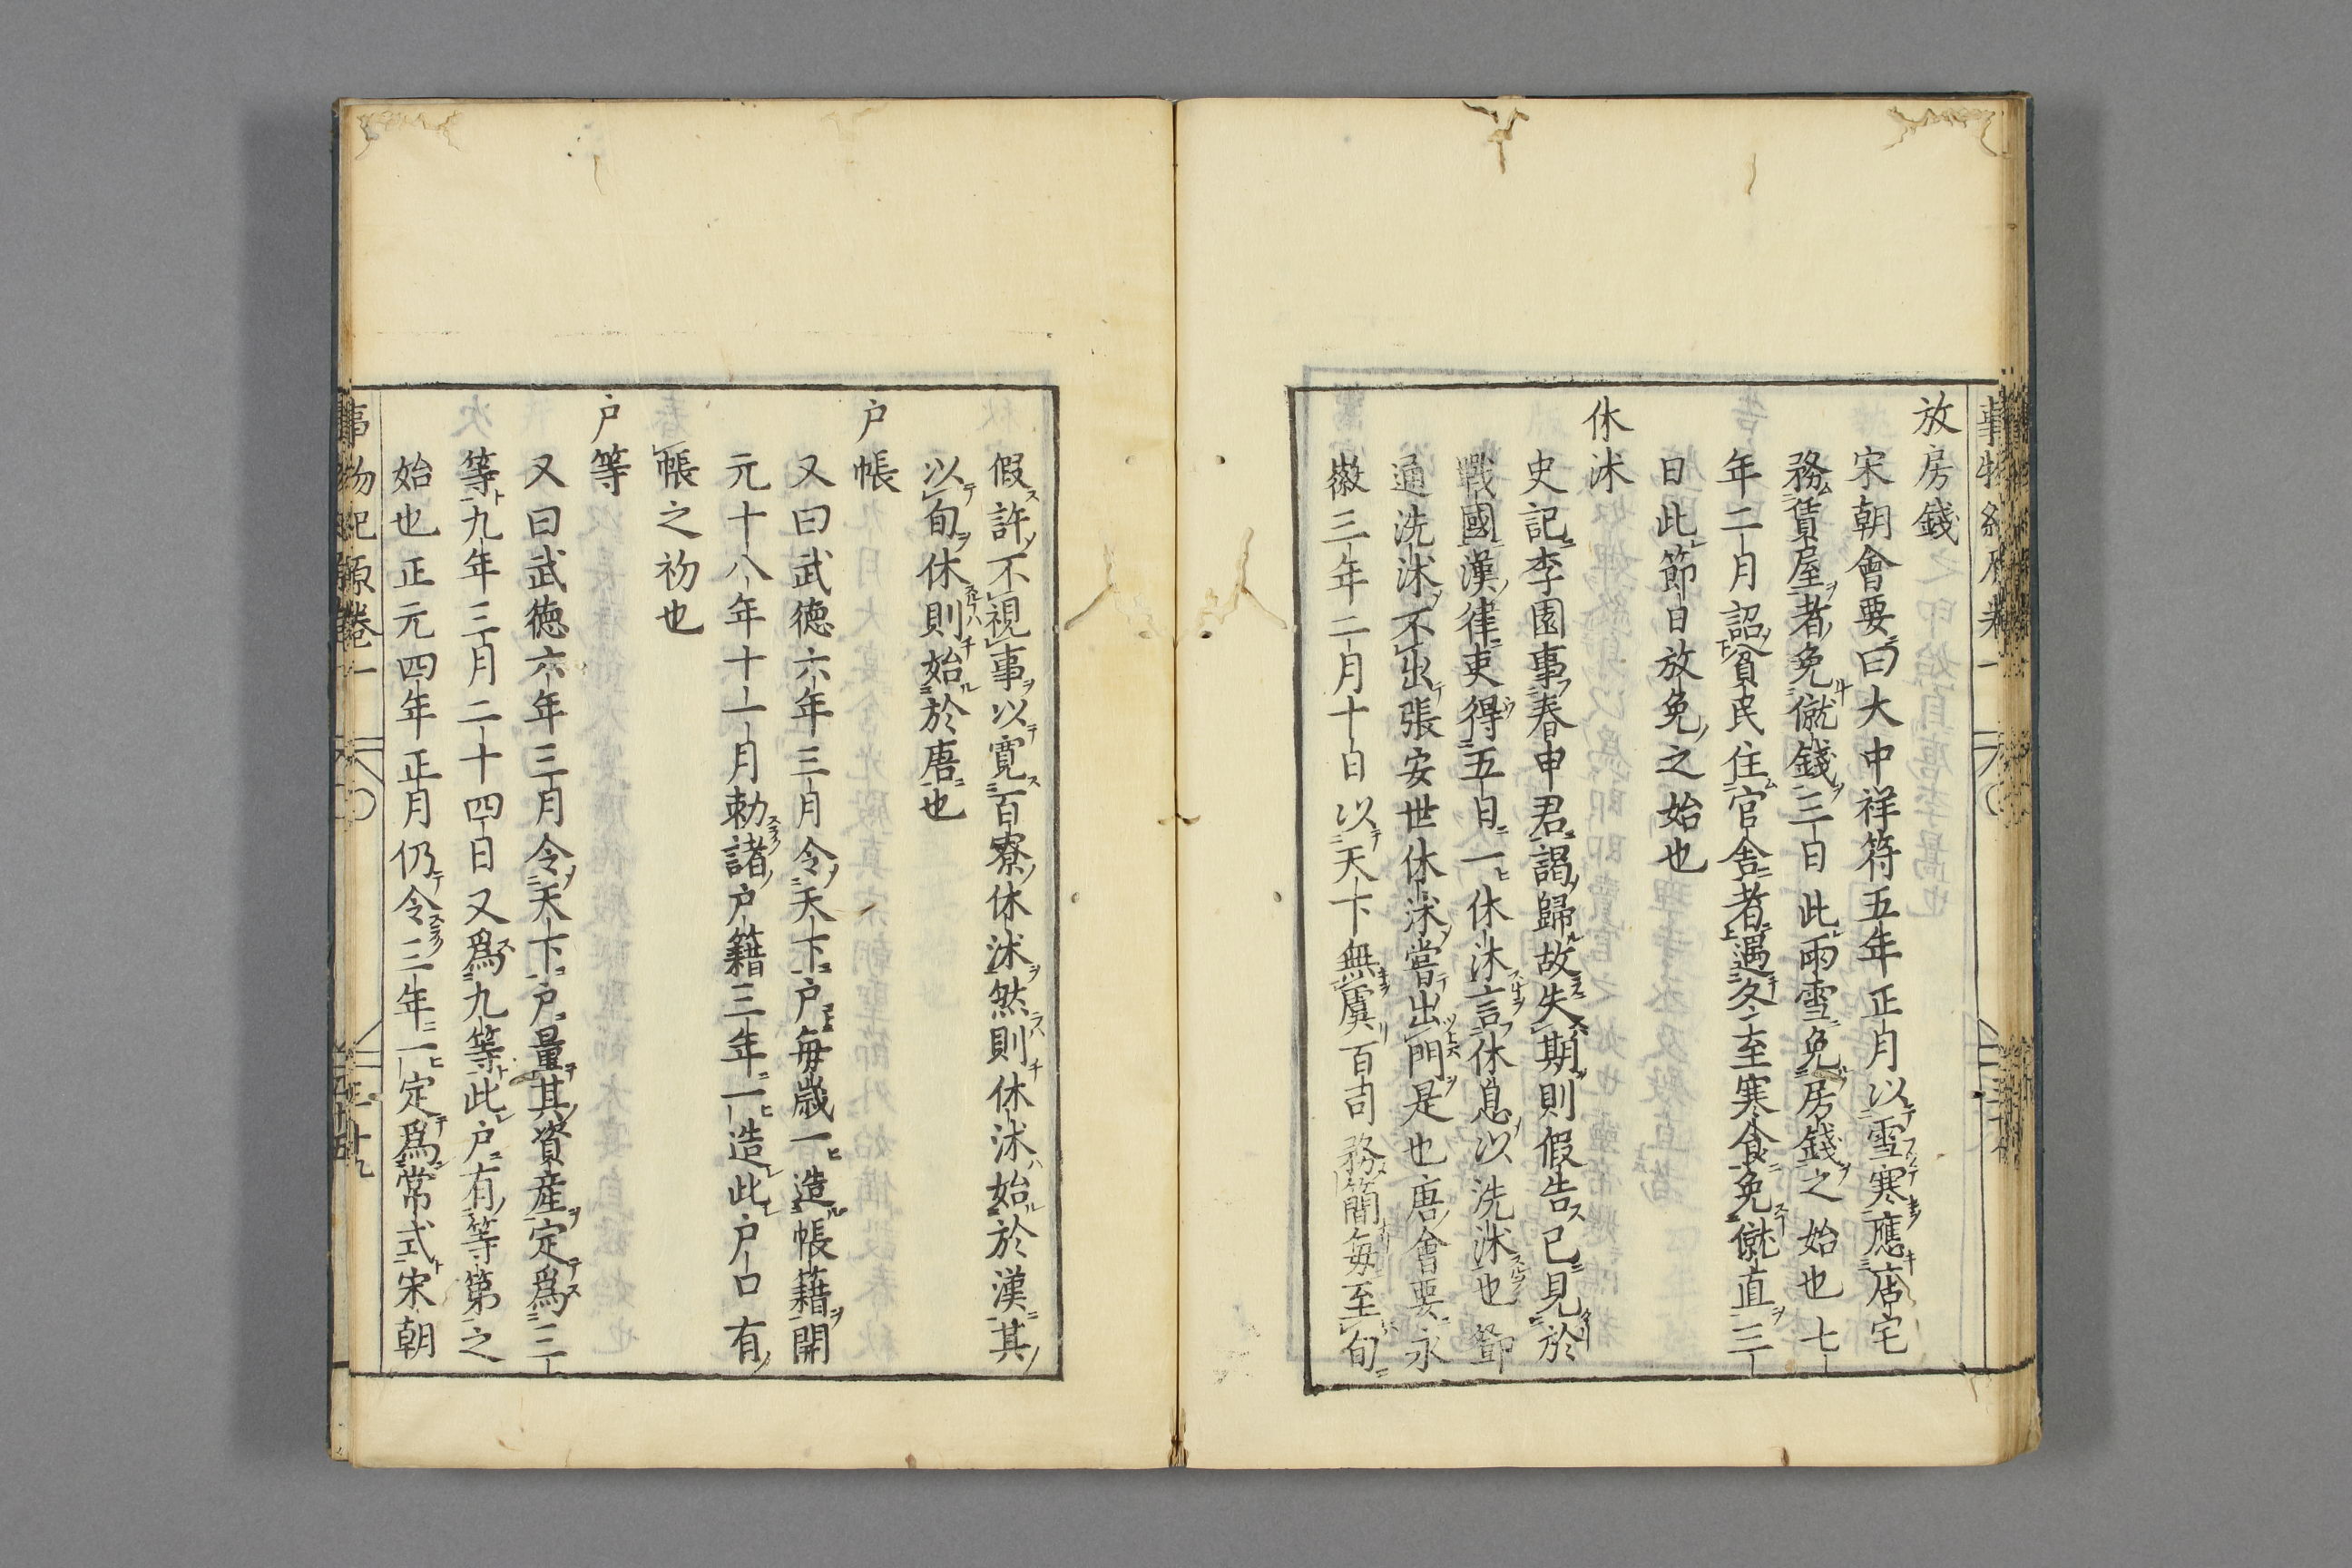 放房錢
宋朝會要曰大中祥符五年正月以雪寒應店宅
務賃屋者免僦錢三日此雨雪免房錢之始也七
年二月詔貧民住官舎者遇冬至寒食免僦直三
日此節日放免之始也
休沐
史記李園事春申君謁歸故失期則假告已見於
戰國漢律吏得五日一休沐言休息以洗沐也鄧
通洗沐不出張安世休沐嘗出門是也唐會要永
徽三年二月十日以天下無虞百司務簡毎至旬
假許不視事以寛百寮休沐然則休沐始於漢其
以旬休則始於唐也
户帳
又曰武德六年三月令天下户毎歳一造帳籍開
元十八年十一月勅諸户籍三年一造此户口有
帳之初也
户等
又曰武徳六年三月令天下户量其資産定爲三
等九年三月二十四日又爲九等此户有等第之
始也正元四年正月仍令三年一定爲常式宋朝
事物紀原卷一